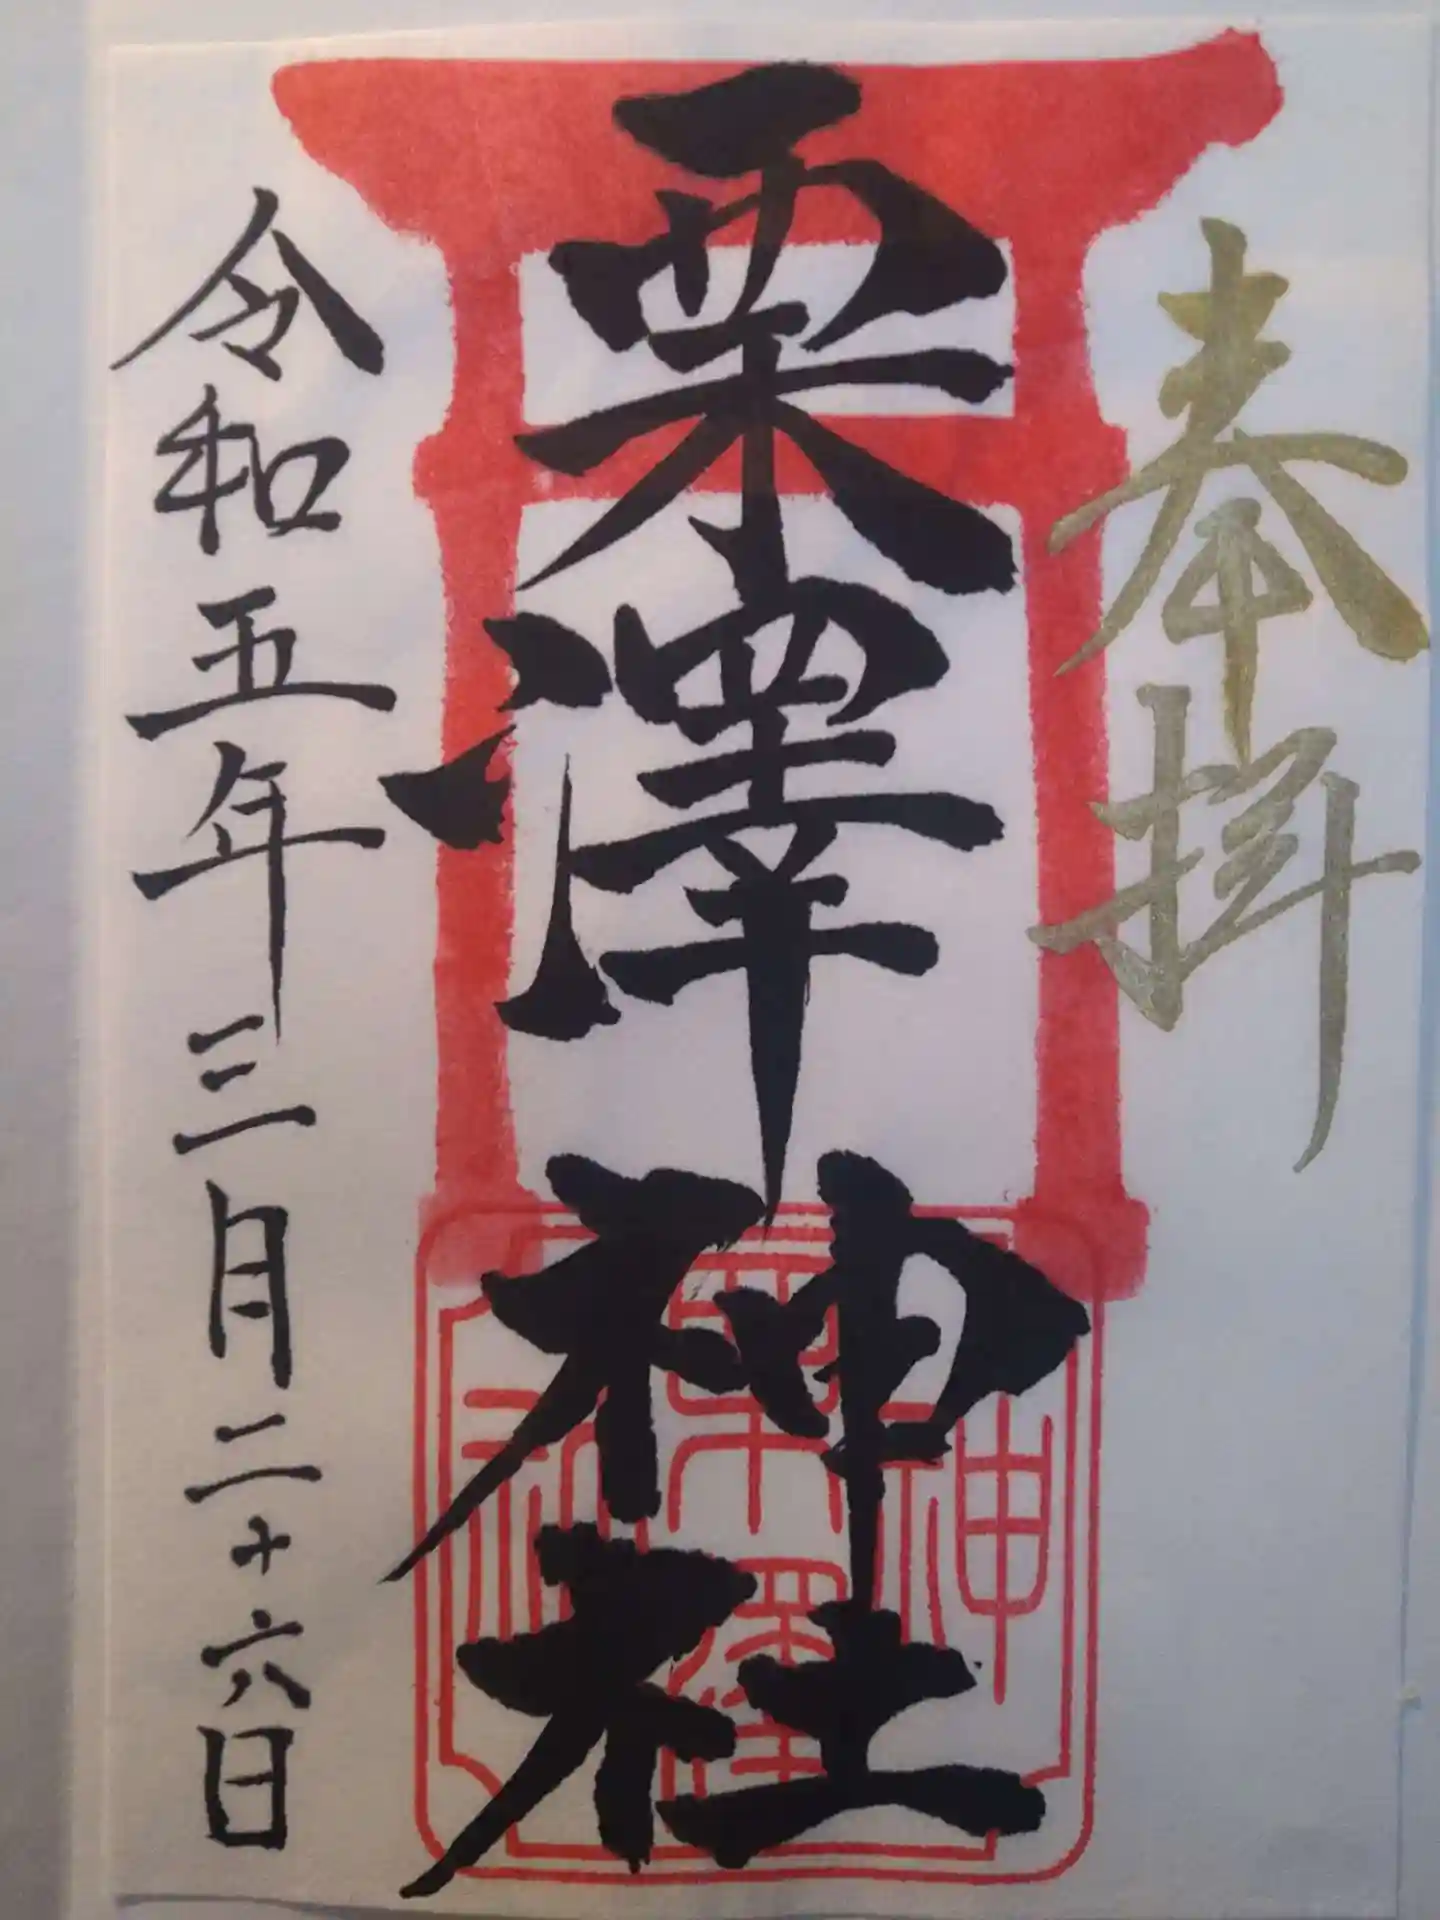 奉拝
栗澤神社
令和五年三月二十六日
栗澤
神
社